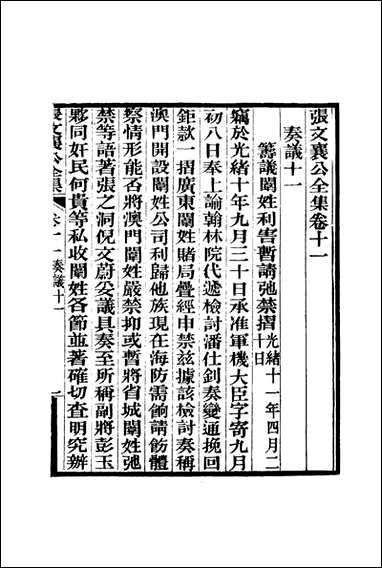 張文襄公全集卷十一
奏議十一
籌議闈姓利害暫請弛禁摺光緒十一年四月二
十日
竊於光緒十年九月三十日承准軍機大臣字寄九月
初八日奉上諭翰林院代遞檢討潘仕釗奏變通挽回
鉅款一摺廣東闈姓賭局疊經申禁茲據該檢討奏稱
澳門開設闈姓公司利歸他族現在海防需餉請飭體
察情形能否將澳門闈姓嚴禁抑或暫將省城闈姓弛
禁等語著張之洞倪文蔚妥議具奏至所稱副將彭玉
夥同奸民何貴等私收闈姓各節並著確切查明究辦
張文襄公全集
卷十一 奏議十一
一